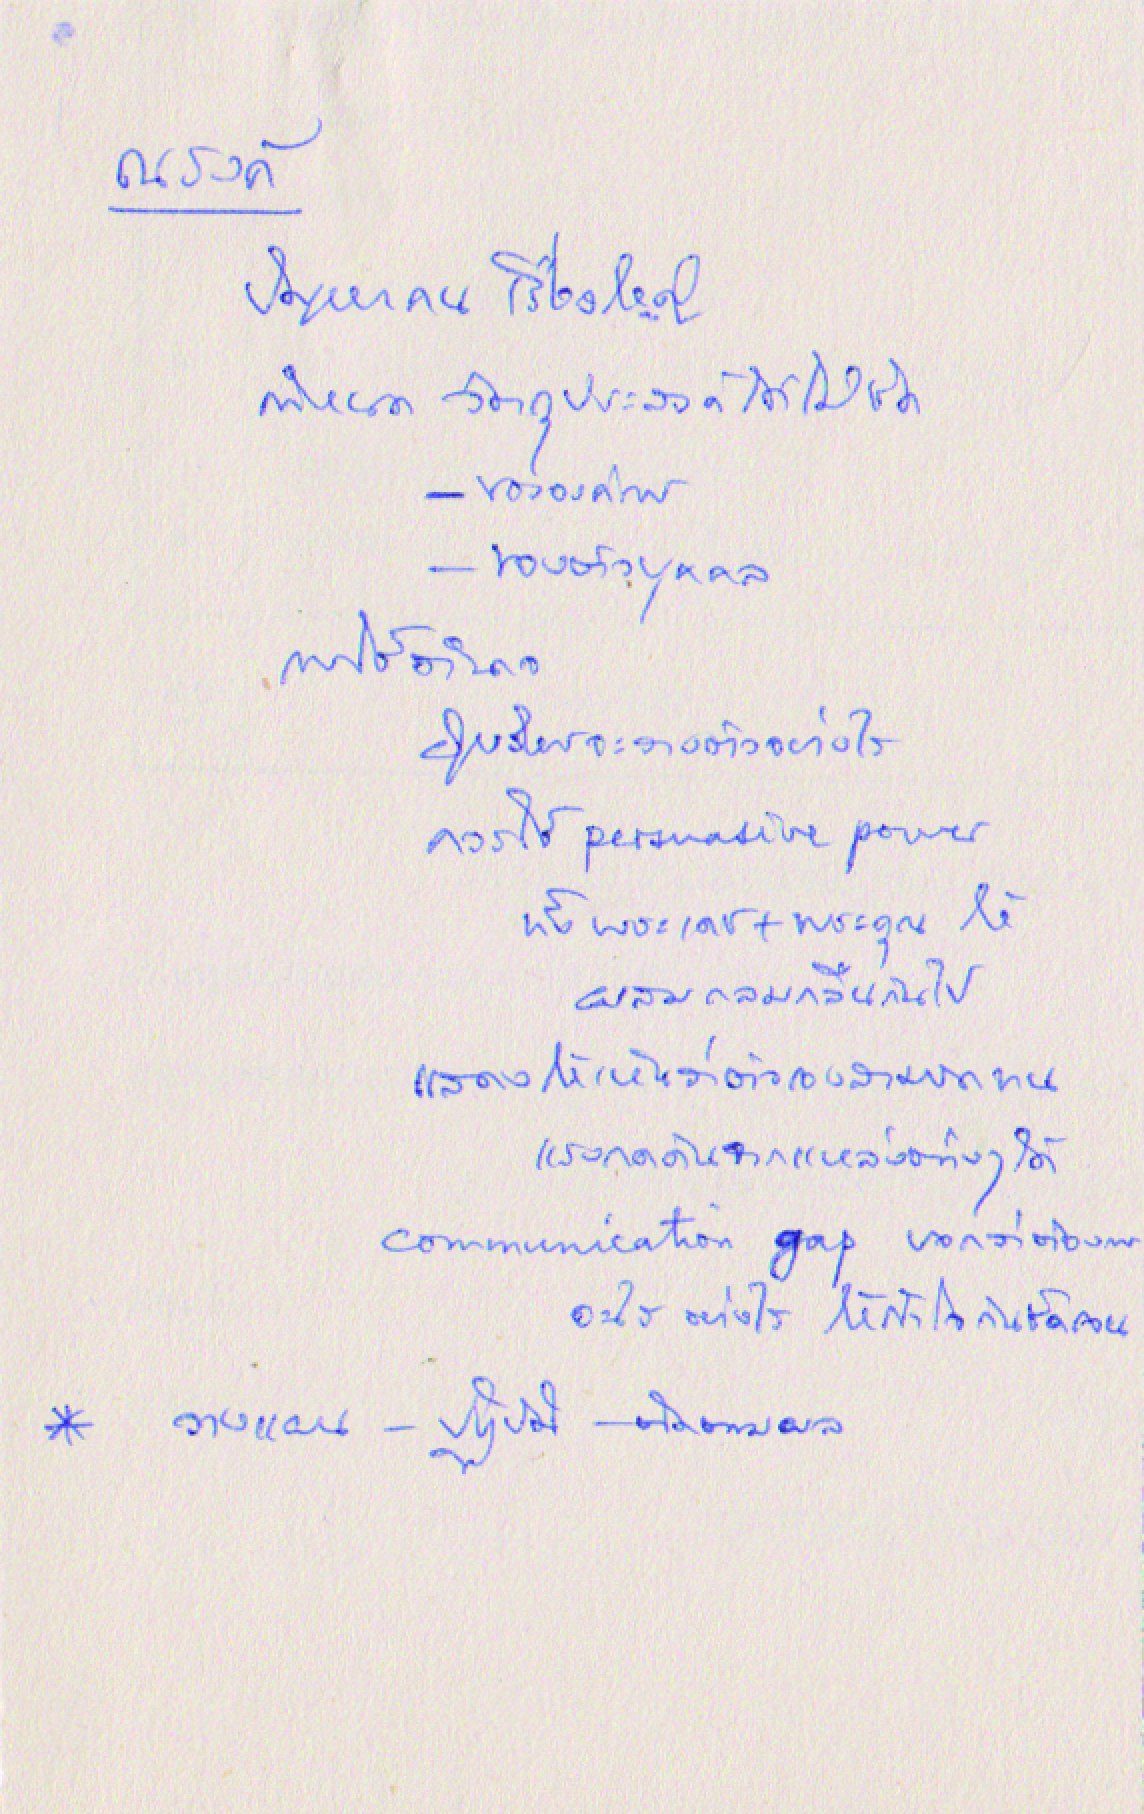 ณรงค์
ปัญหาคน เรื่องใหญ่
กำหนด วัตถุประสงค์ได้ไม่ชัด
- ขององค์การ
- ของตัวบุคคล
การใช้อำนาจ
ผู้บริหารจะวางตัวอย่างไร
ควรใช้ persuasive power
ทั้งพระเดช + พระคุณ ให้
ผสมกลมกลืนกันไป
แสดงให้เห็นว่าตัวเองสามารถทน
แรงกดดันจากแหล่งต่างๆ ได้
communication gap บอกว่าต้องการ
อะไร อย่างไร ให้เข้าใจกันชัดเจน
* วางแผน - ปฏิบัติ - ติดตามผล